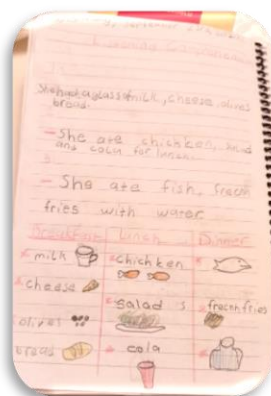 She had a glass of milk, cheese, olives
bread.
- She ate chichken, salad
and cola for lunch.
- She ate fish, frecnh
fries with water
Breakfast Lunch Dinner
milk chichken
cheese
salad s frecnh fries
olives
bread cola